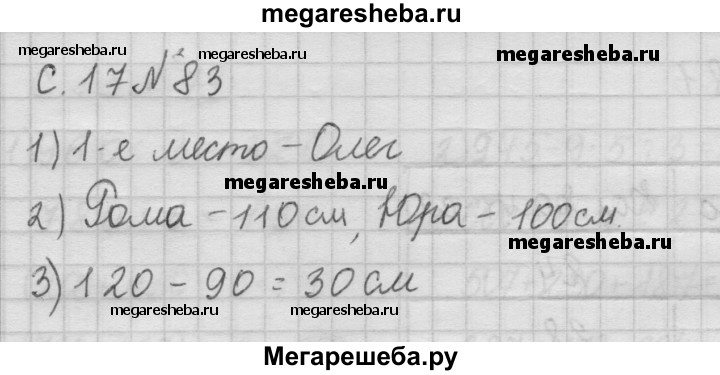 megaresheba.ru
megaresheba.ru megaresheba.ru megaresheba.ru
с. 17 № 83
1) 1-е место - Олег
megaresheba.ru
2) Рома - 110 см, Юра - 100 см.
megaresheba.ru
3) 120 - 90 = 30 см
megaresheba.ru megaresheba.ru megaresheba.ru
Мегарешеба.ру